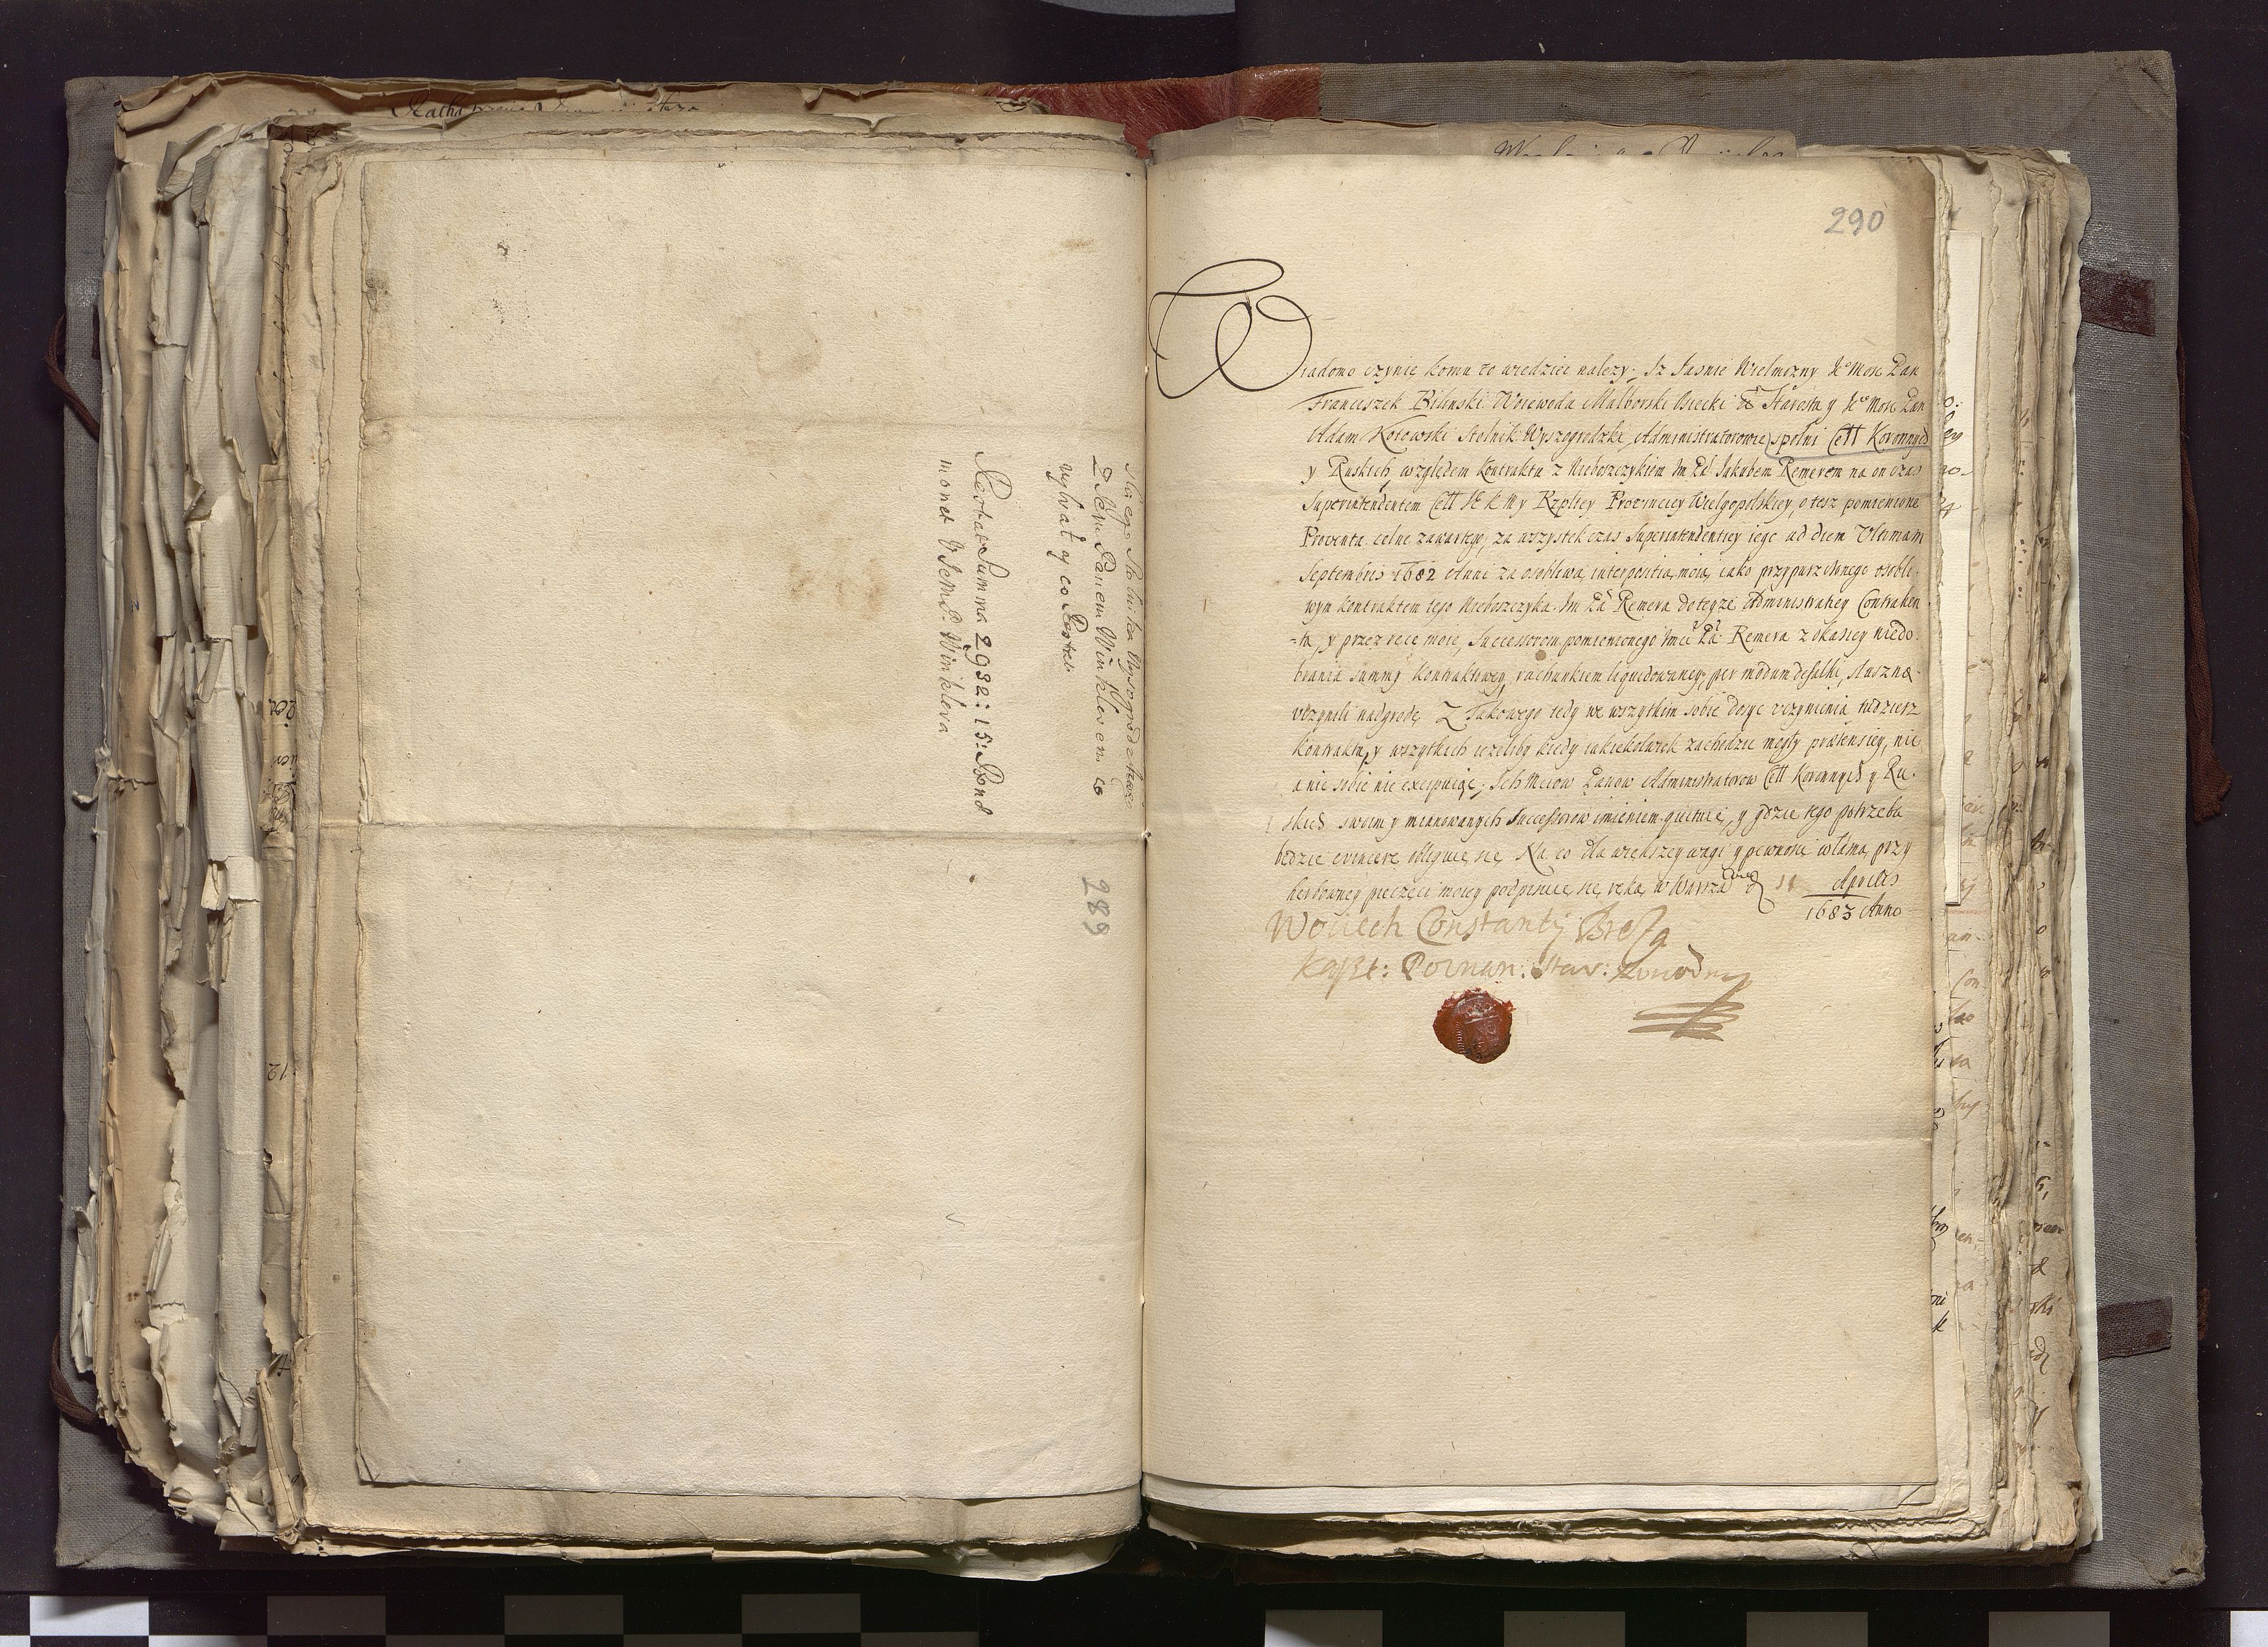 Stołnika Wyszogrodzkiego
Z Jem Panem Winklerem co
wybrał y co Restat
Restat Summa 2932:15: Bon
monet u Jem P: Winklera
289
290
Wiadomo czynię komu to wiedziec nalezy. Iz Jasnie Wielmozny Je Mosc Pan
Franciszek Bilinski Woiewoda Malborski Osiecki Starosta y Je Mosc Pan
Adam Kotowski Stolnik Wyszogrodzki, Administratorowie spolni Cell Koronnych
y Ruskich, względem Kontraktu z Nieboszczykiem Im Pa Jakubem Remerem na on czas
Superintendentem Cell JE K M y Rzpltey Prowinciey Wielgopolskiey, o tesz pomienione
Prowenta celne zawartego, za wszystek czas Superintendentiey iego ad diem Ultimam
Septembris 1682 Anni za osobliwą interpositią moią, iako przypuszczonego osobli-
wym kontraktem tego Nieboszczyka Im Pa Remera do teyze Administratiey Contrahen
-ta, y przez rece moie, Successorom pomienionego Imci Pa Remera z okasiey niedo-
brania summy Kontraktowey, rachunkiem liquidowaney, per modum defalki, słuszną
uczynili nadgrodę. Z Takowego tedy we wszytkim sobie dosyc uczynienia tudziesz
Kontraktu, y wszytkich iezeliby kiedy iakiekolwiek zachodzic mogły praetensiey, nic
a nic sobie nie excipuiąc, Ich Mciow Panow Administratorow Cell Koronnych y Ru-
skich swoim y mianowanych Successorow imieniem quituię, y gdzie tego potrzeba
bedzie evincere obliguię się. Na co dla większey wagi y pewnosci własną przy
herbowney pieczęci moiey podpisuie się ręką w Warszawie d 11 Aprilis
1683 Anno
Woiciech Constanty Breza
Kaszt: Poznan: Star: